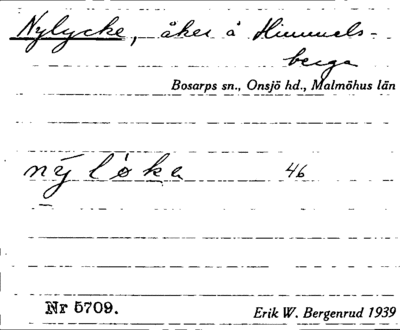 Nylycke, åker å Himmels-
berga
Bosarps sn., Onsjö hd., Malmöhus län
ny lo ka 46
Nr 5709.
Erik W. Bergenrud 1939